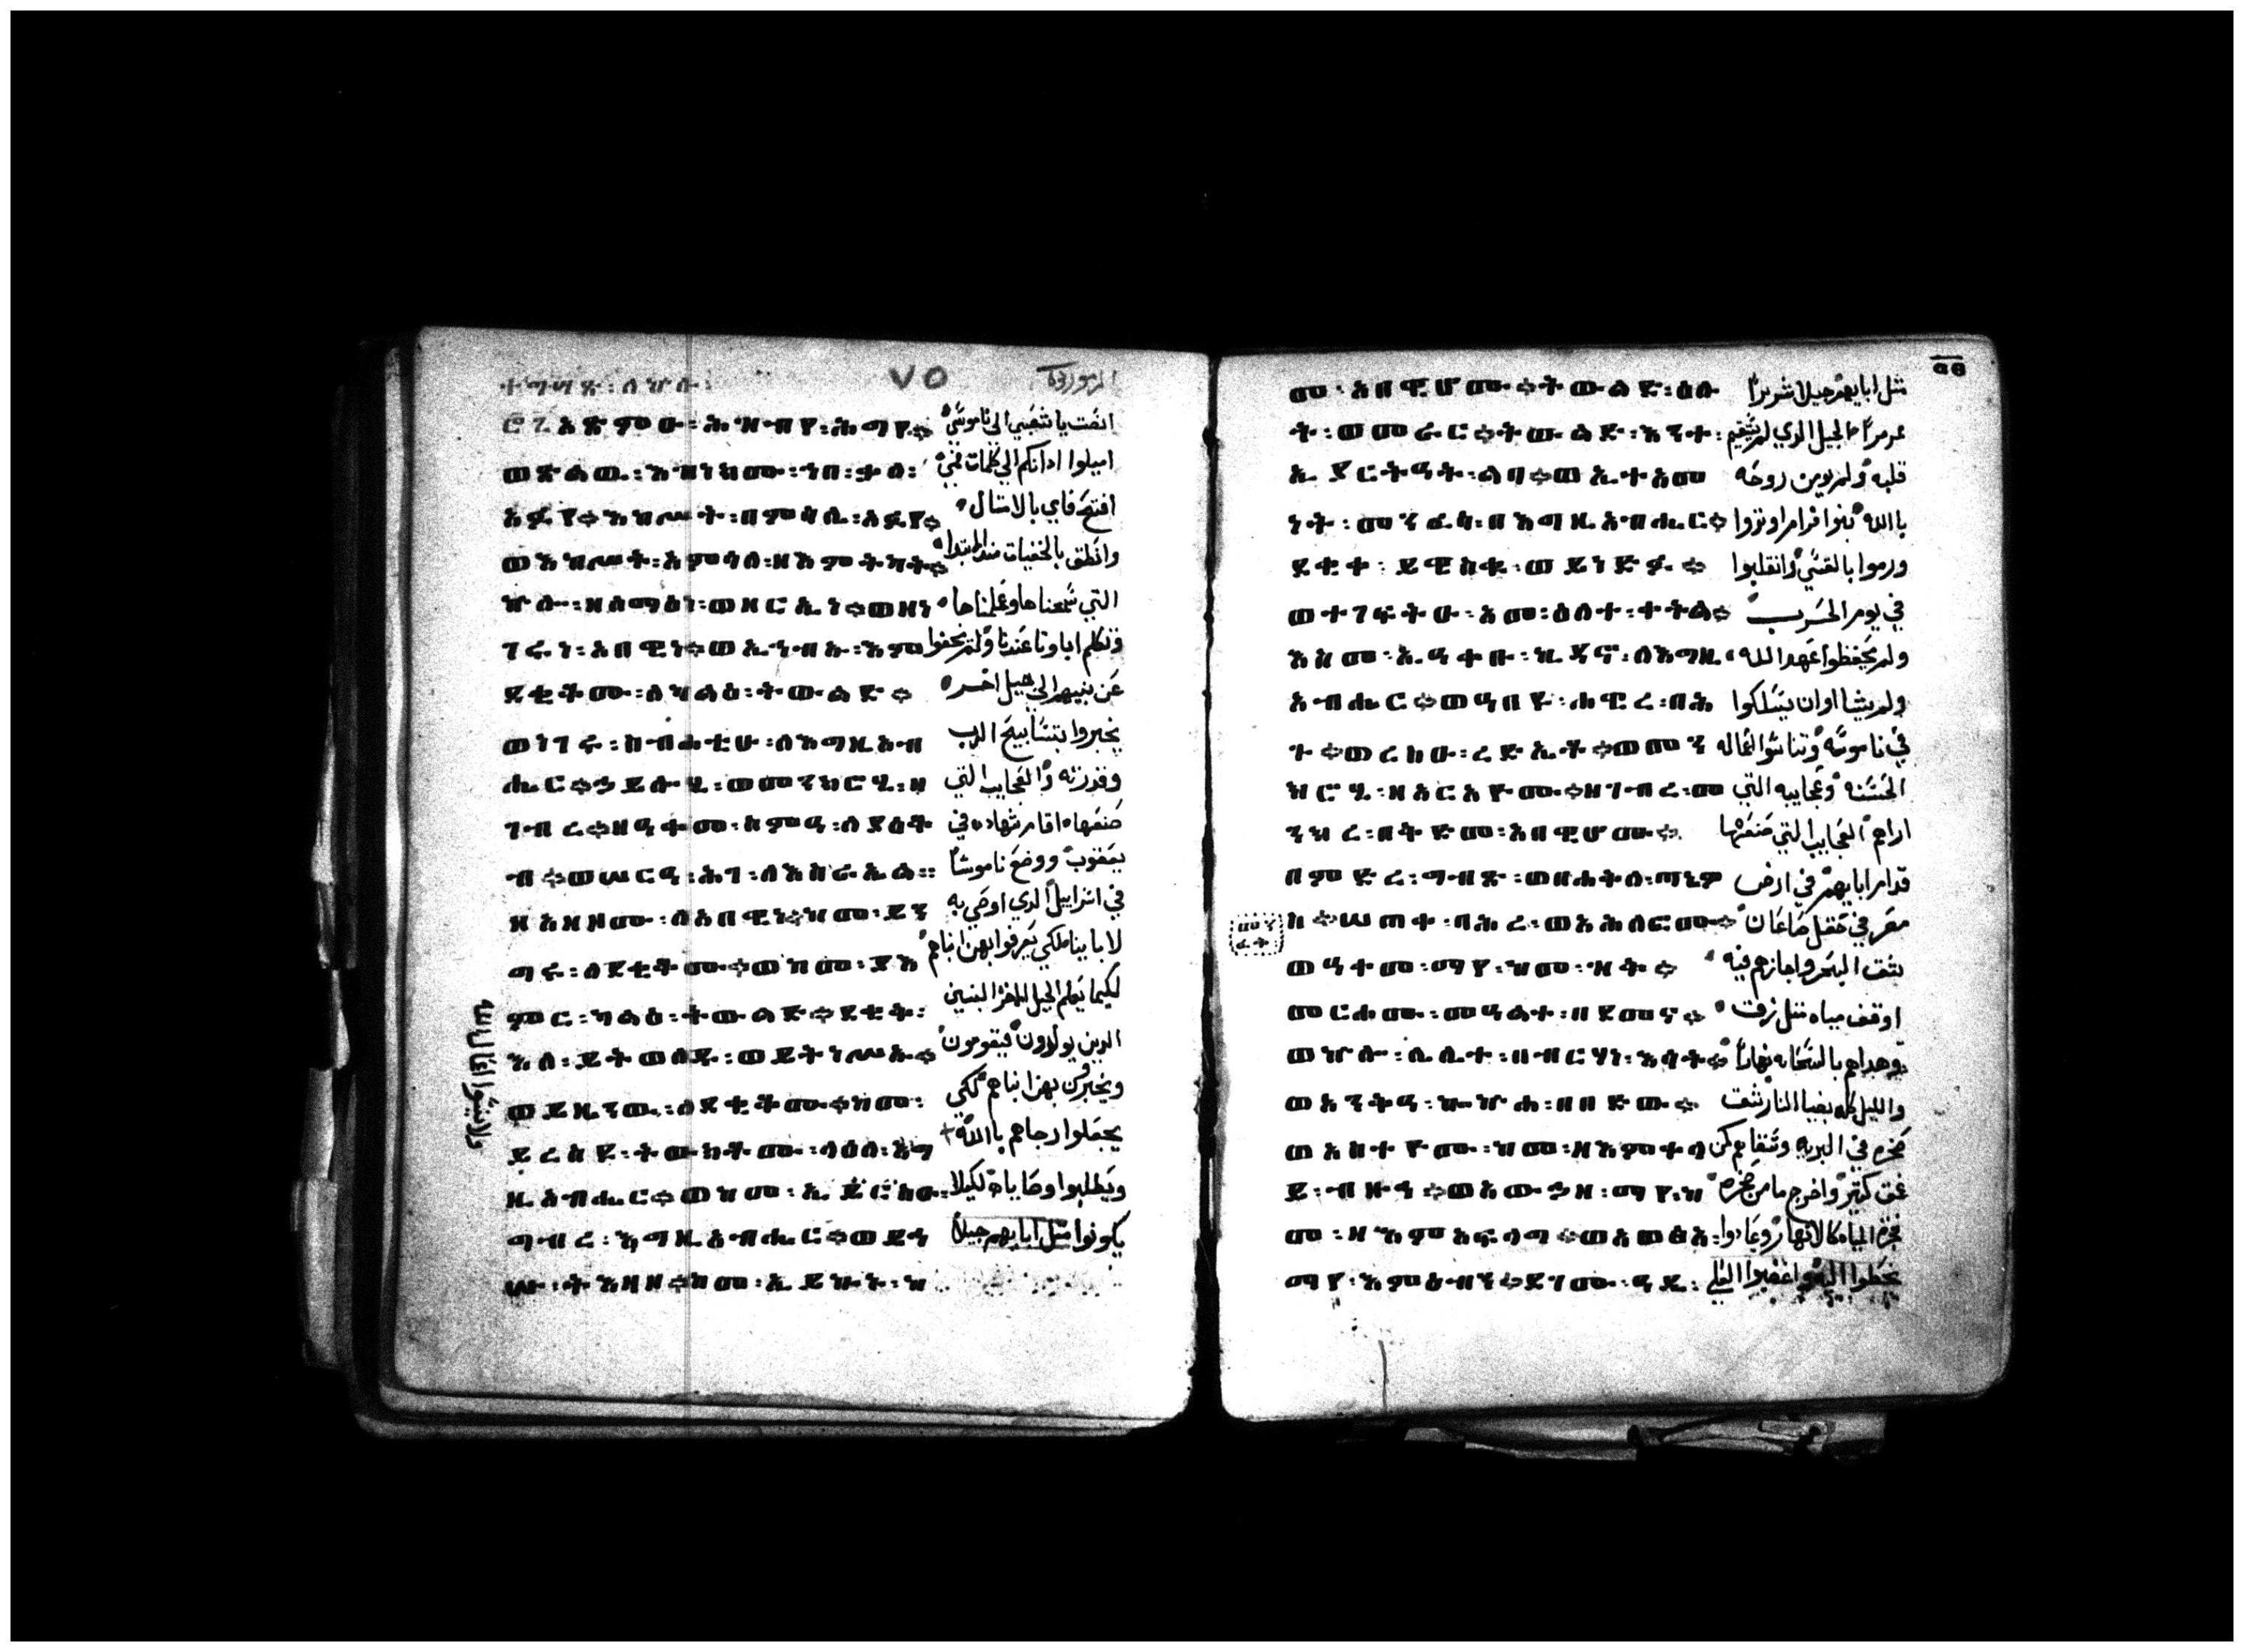 ٧٥
ر አጽምዑ፡ሕዝብየ፡ሕግየ። انصت يا شعبي الى ناموسي
ወጽልው፡እዝነክሙ፡ኀበ፡ቃለ፡ اميلوا ادانكم الي كلمات فمي
አፉየ።እከሥት፡በምሳሌ፡አፉየ። افتح فاي بالامتال
ወእከሥት፡አምሳለ፡ዘእምትካት። وانطق بالخفيات مند الابتدا
ኵሎ፡ዘሰማዕነ፡ወዘርኢነ።ወዘነ التي سمعناها وعلمناها
ገሩነ፡አበዊነ።ወኢኀብኡ፡እም وتكلم اباونا عندنا ولم يخفوا
ደቂቆሙ፡ለካልዕ፡ትውልድ። عن بنيهم الي جيل اخر
ወነገሩ፡ስብሐቲሁ፡ለእግዚአብ يخبروا بتسابيح الرب
ሔር።ኀይሎ፡ወመንክሮ፡ዘ وقدرته والعجايب التي
ገብረ።ዘዐቀሙ፡ስምዐ፡ለያዕቆ صنعها اقام شهاده في
ብ።ወሠርዐ፡ሕገ፡ለእስራኤል። يعقوب ووضع ناموسا
ዘአዘዞሙ፡ለአበዊነ።ከመ፡ይን في اسراييل الدي اوصي به
ግሩ፡ለደቂቆሙ።ወከመ፡ያእ لاباينا لكي يعرفوا بهدا ابناهم
ምር፡ካልዕ፡ትውልድ።ደቂቅ፡ لكيما يعلم الجيل الاخر البنين
እለ፡ይትወለዱ፡ወይትነሥኡ። الدين يولدون فيقومون
ወይዜንው፡ለደቂቆሙ።ከመ፡ ويخبرون بهدا ابناهم لكي
ይረስዩ፡ትውክልቶሙ፡ላዕለ፡እግ يجعلوا رجاهم بالله
ዚአብሔር።ወከመ፡ኢይርስዑ፡ ويطلبوا وصاياه لكيلا
ግብረ፡እግዚአብሔር።ወይኅ يكونوا مثل ابايهم جيلا
ሡ፡ትእዛዞ።ከመ፡ኢይኩኑ፡ከ
ولا ينسوا اعمال الله
መ፡አበዊሆሙ።ትውልድ፡ዕሉ مثل ابايهم جيلا شريرا
ት፡ወመራር።ትውልድ፡እንተ፡ مرمرا الجيل الدي لم يستقيم
ኢያርትዐት፡ልበ።ወኢተአመ قلبه ولم يومن روحه
ነት፡መንፈሳ፡በእግዚአብሔር። بالله بنوا فرام اوتروا
ደቂቀ፡ይዊስቁ፡ወይነድፉ። ورموا بالقسي وانقلبوا
ወተገፍትዑ፡አመ፡ዕለተ፡ተትል። في يوم الحرب
እስመ፡ኢዐቀቡ፡ኪዳኖ፡ለእግዚ ولم يحفظوا عهد الله
አብሔር።ወዐበዩ፡ሐዊረ፡በሕ ولم يشااوا ان يسلكوا
ጉ።ወረስዑ፡ረድኤቶ።ወመን في ناموسه وتناسوا اعماله
ክሮ፡ዘአርአዮሙ።ዘገብረ፡መ الحسنه وعجايبه التي
ንክረ፡በቅድመ፡አበዊሆሙ። اراهم العجايب التي صنعها
በምድረ፡ግብጽ፡ወበሐቅለ፡ጣኔዎ قدام ابايهم في ارض
ስ።ሠጠቀ፡ባሕረ፡ወአኅለፎሙ። مصر في حقل صاعان
ወዐቀመ፡ማየ፡ከመ፡ዝቅ። شق البحر واجازهم فيه
መርሐሙ፡መዐልተ፡በደመና። اوقف مياه مثل زق
ወኵሎ፡ሌሊተ፡በብርሃነ፡እሳት። وهداهم بالسحابه نهارا
ወአንቅዐ፡ኰኵሐ፡በበድው። والليل كله بضيا النار شق
ወአስተዮሙ፡ከመ፡ዘእምቀላ صخره في البريه وسقاهم كمن
ይ፡ብዙኅ።ወአውኀዘ፡ማየ፡ከ عمق كتير واخرج ما من صخره
መ፡ዘእምአፍላግ።ወአውፅአ፡ فجر المياه كالانهار وعادوا
ማየ፡እምዕብን።ይገሙ፡ዓዲ፡